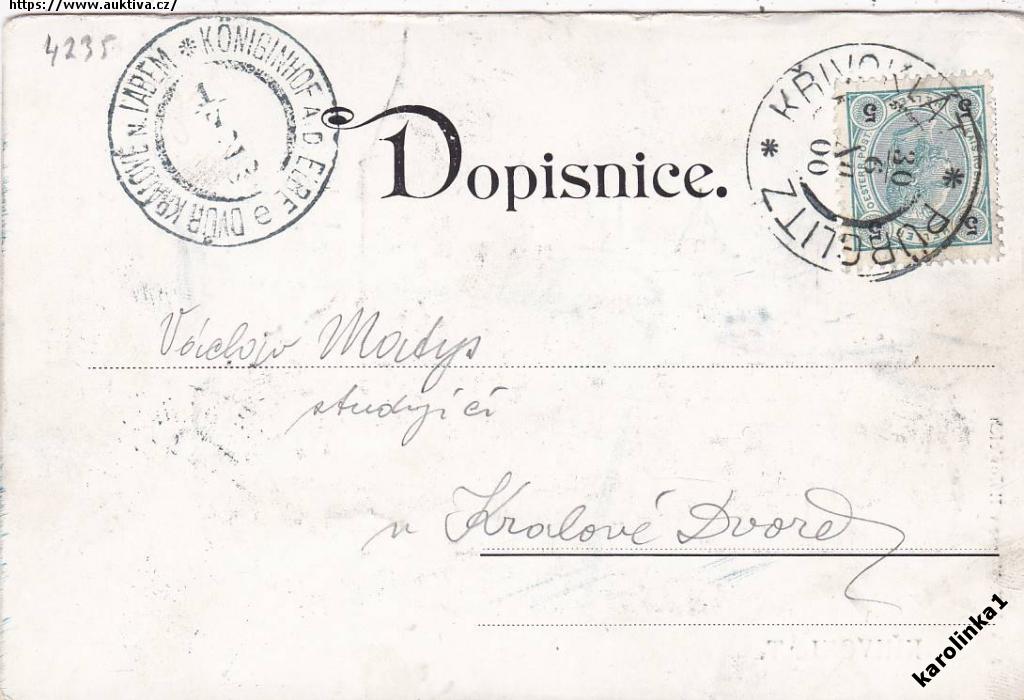 https://www.auktiva.cz/
4235
* KÖNIGINHOF A.D. ELBE
DVŮR KRÁLOVÉ N. LABEM
Dopisnice.
* KŘIVOKLÁT *
PÜRGLITZ
30
6
00
5 5
5 5
Matys
studující
v Kralové Dvoře
karolinka1